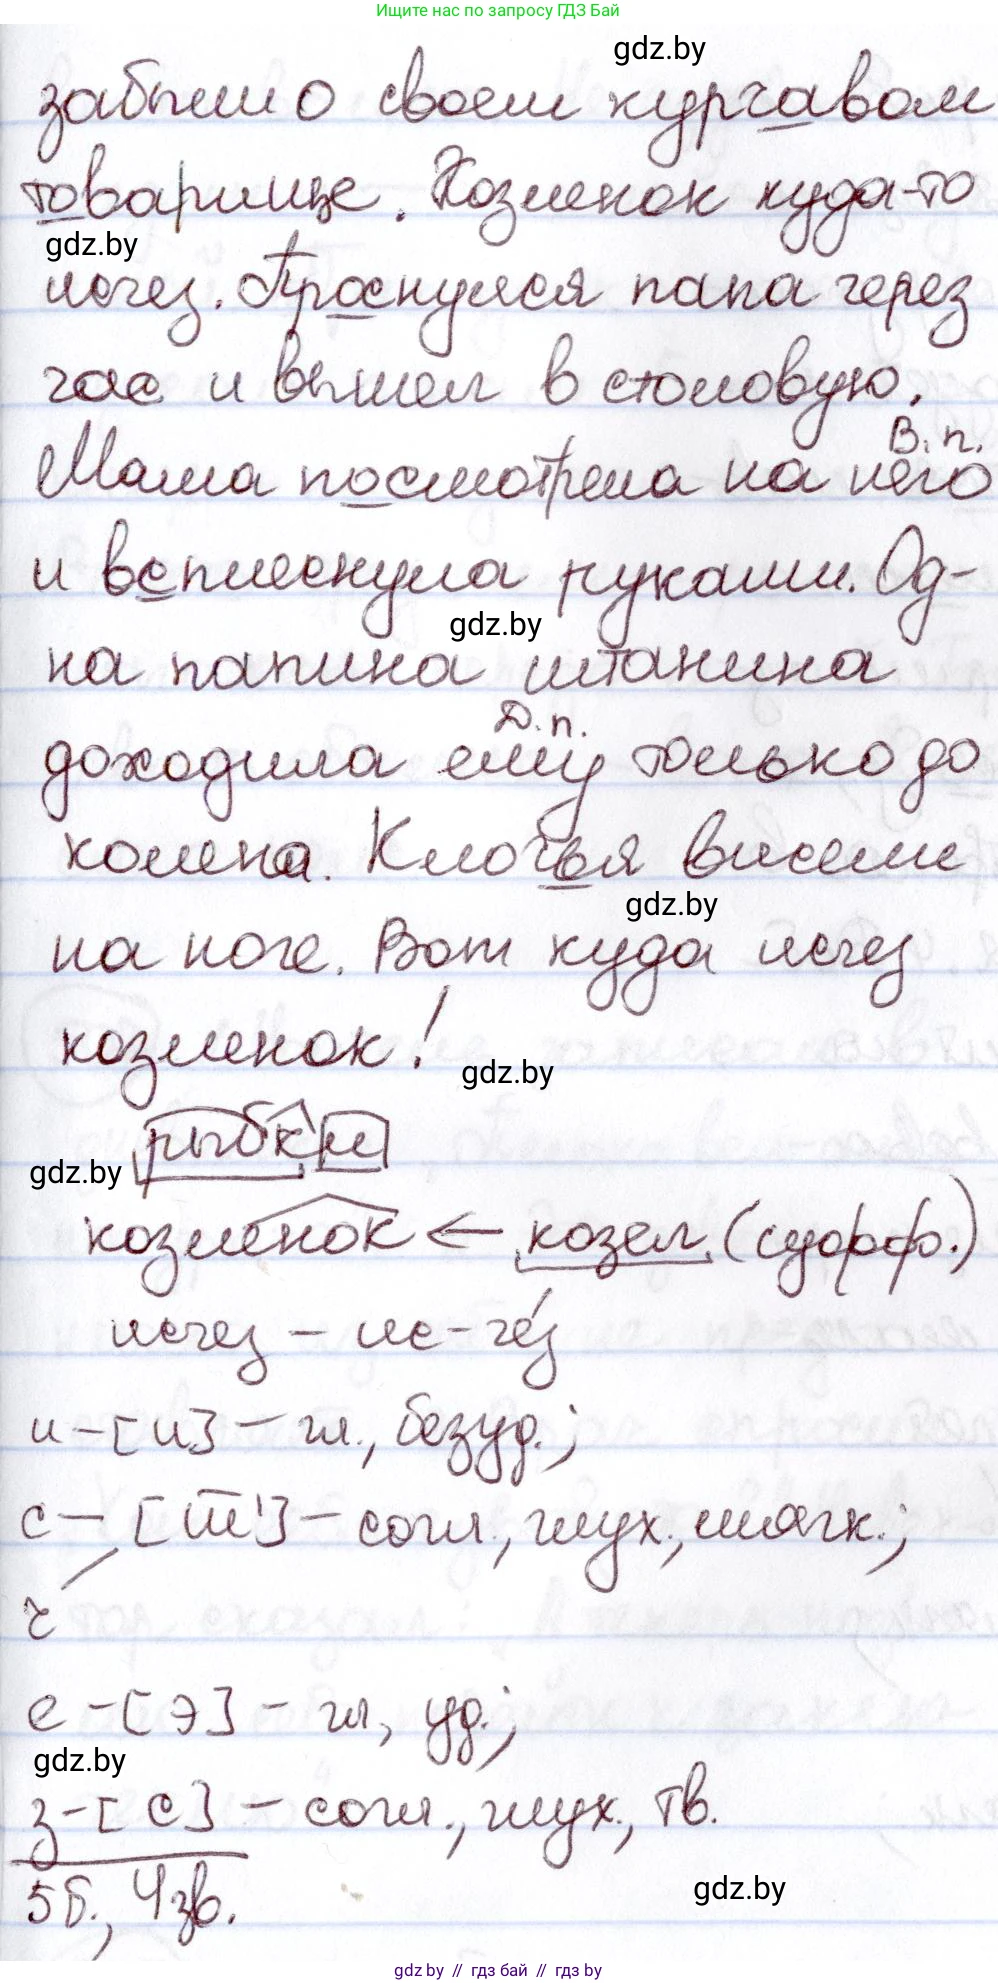 Ищите нас по запросу ГДЗ Бай
gdz.by
забыли о своем кургавом
товарище. Козленок куда-то
gdz.by
исчез. Проснулся папа через
час и вышел в столовую.
В. п.
Мама посмотрела на него
и всплеснула руками. Од-
gdz.by
на папина штанина
Д. п.
доходила ему только до
колена. Клочья висели
gdz.by
на ноге. Вот куда исчез
козленок!
gdz.by
рыбки
gdz.by
козленок ← козел (суффф.)
исчез – ис-че́з
и – [и] – гл., безуд.;
с – [ш̅'] – согл., глух., мягк.;
ч
е – [э] – гл., уд.;
gdz.by
з – [с] – согл., глух., тв.
5 б., 4 зв.
gdz.by
gdz.by // гдз бай // gdz.by